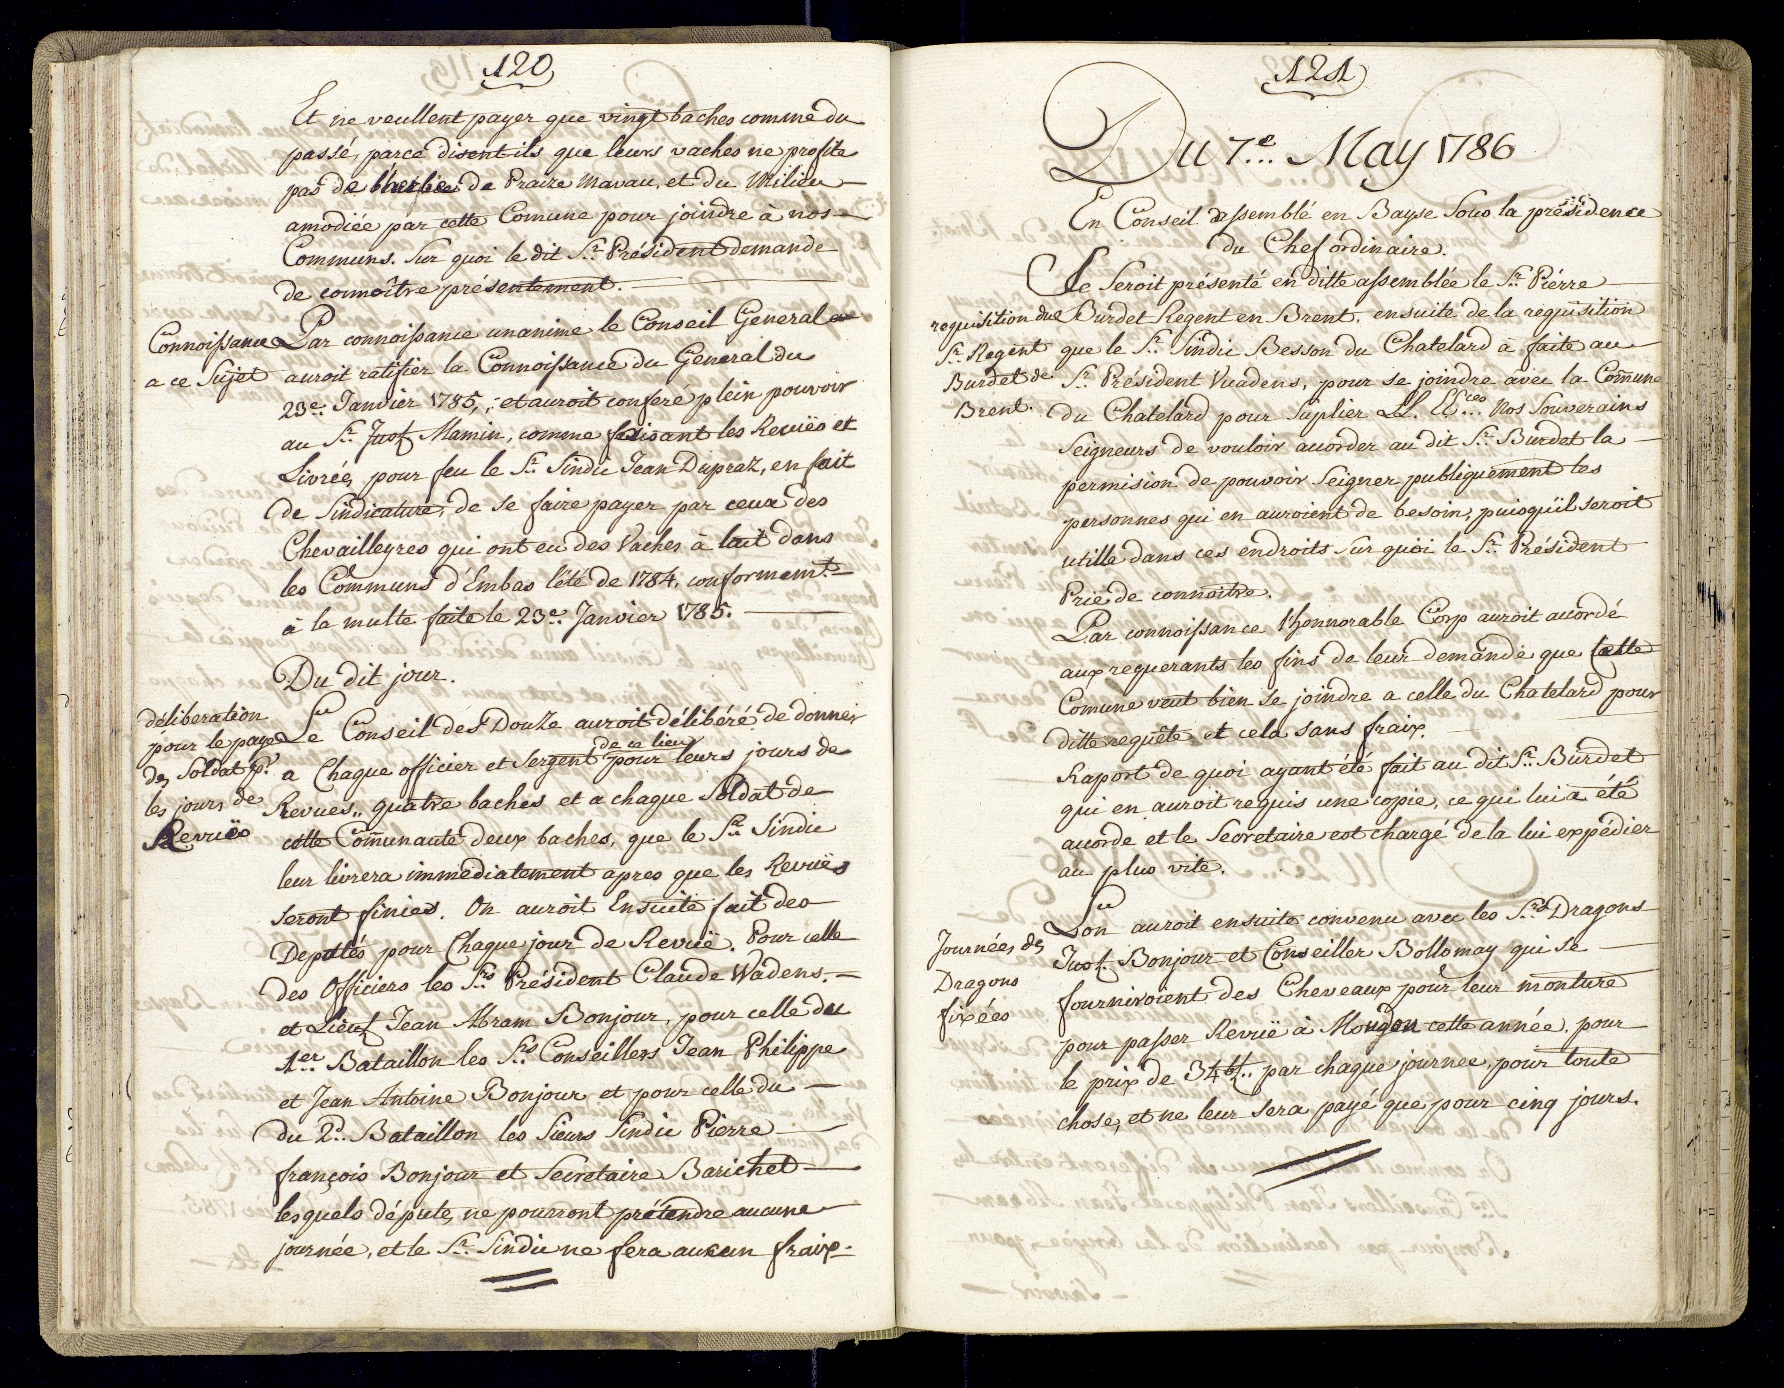 120
Et ne veullent payer que vingt baches comme du
passé, parce disent ils que leurs vaches ne profite
pas de l'herbe de Praize Mavau, et du Milieu
amodiée par cette Comune pour joindre à nos
Communs. Sur quoi le dit Sr. Président demande
de connoître présentement.
Connoissance
a ce Sujet
Par connoissance unanime le Conseil General
auroit ratifier la Connoissance du General du
23e. Janvier 1785, et auroit conferé plein pouvoir
au Sr. Just Mamin, comme faisant les Revuës et
Livrées pour feu le Sr. Sindic Jean Dupraz, en fait
de Sindicature, de se faire payer par ceux des
Chevailleyres qui ont eu des Vaches à lait dans
les Communs d'Embas l'été de 1784. conformemt.
à la multe faite le 23e. Janvier 1785.
Du dit jour.
déliberation
pour le paye
des Soldat pr.
les jours de
Revuës
Le Conseil des Douze auroit délibéré de donner
de ce lieu
a Chaque officier et Sergent pour leurs jours de
Revues,, quatre baches et a chaque Soldat de
cette Communauté deux baches, que le Sr. Sindic
leur livrera immédiatement apres que les Revuës
seront finies. On auroit Ensuite fait des
Deputés pour Chaque jour de Revuë. Pour celle
des Officiers les Srs. Président Claude Wadens.
et Lieut Jean Abram Bonjour, pour celle du
1er. Bataillon les Srs. Conseillers Jean Philippe
et Jean Antoine Bonjour et pour celle du
du 2d. Bataillon les Sieurs Sindic Pierre
françois Bonjour et Secretaire Barichet
lesquels députes, ne pourront prétendre aucune
journée, et le Sr. Sindic ne fera aucun fraix.
121
Du 7e... May 1786
En Conseil assemblé en Bayse sous la présidence
du Chef ordinaire.
requisition du
Sr. Regent
Burdet de
Brent.
Se Seroit présenté en ditte assemblée le Sr. Piérre
Burdet Regent en Brent. ensuite de la requisition
que le Sr. Sindic Besson du Chatelard à faite au
Sr. Président Vuadens, pour se joindre avec la Comune
du Chatelard pour suplier LL. EEces... Nos Souverains
Seigneurs de vouloir accorder au dit Sr. Burdet la
permision de pouvoir Seigner publiquement les
personnes qui en auroient de besoin, puisqu'il seroit
utille dans ces endroits sur quoi le Sr. Président
Prie de connoitre.
Par connoissance l'honnorable Corp auroit accordé
aux requerants les fins de leur demande que cette
Comune veut bien se joindre a celle du Chatelard pour
ditte requête et cela sans fraix.
Raport de quoi ayant été fait au dit Sr. Burdet
qui en auroit requis une copie, ce qui lui a été
acordé et le Secretaire est chargé de la lui expédier
au plus vite.
Journées des
Dragons
fixées
Lon auroit ensuite convenu avec les Srs. Dragons
Just. Bonjour et Conseiller Bollomay qui se
fourniroient des Cheveaux pour leur monture
pour passer Revuë à Moudon cette année. pour
le prix de 34 bt.. par chaque journee, pour toute
chose, et ne leur sera payé que pour cinq jours.